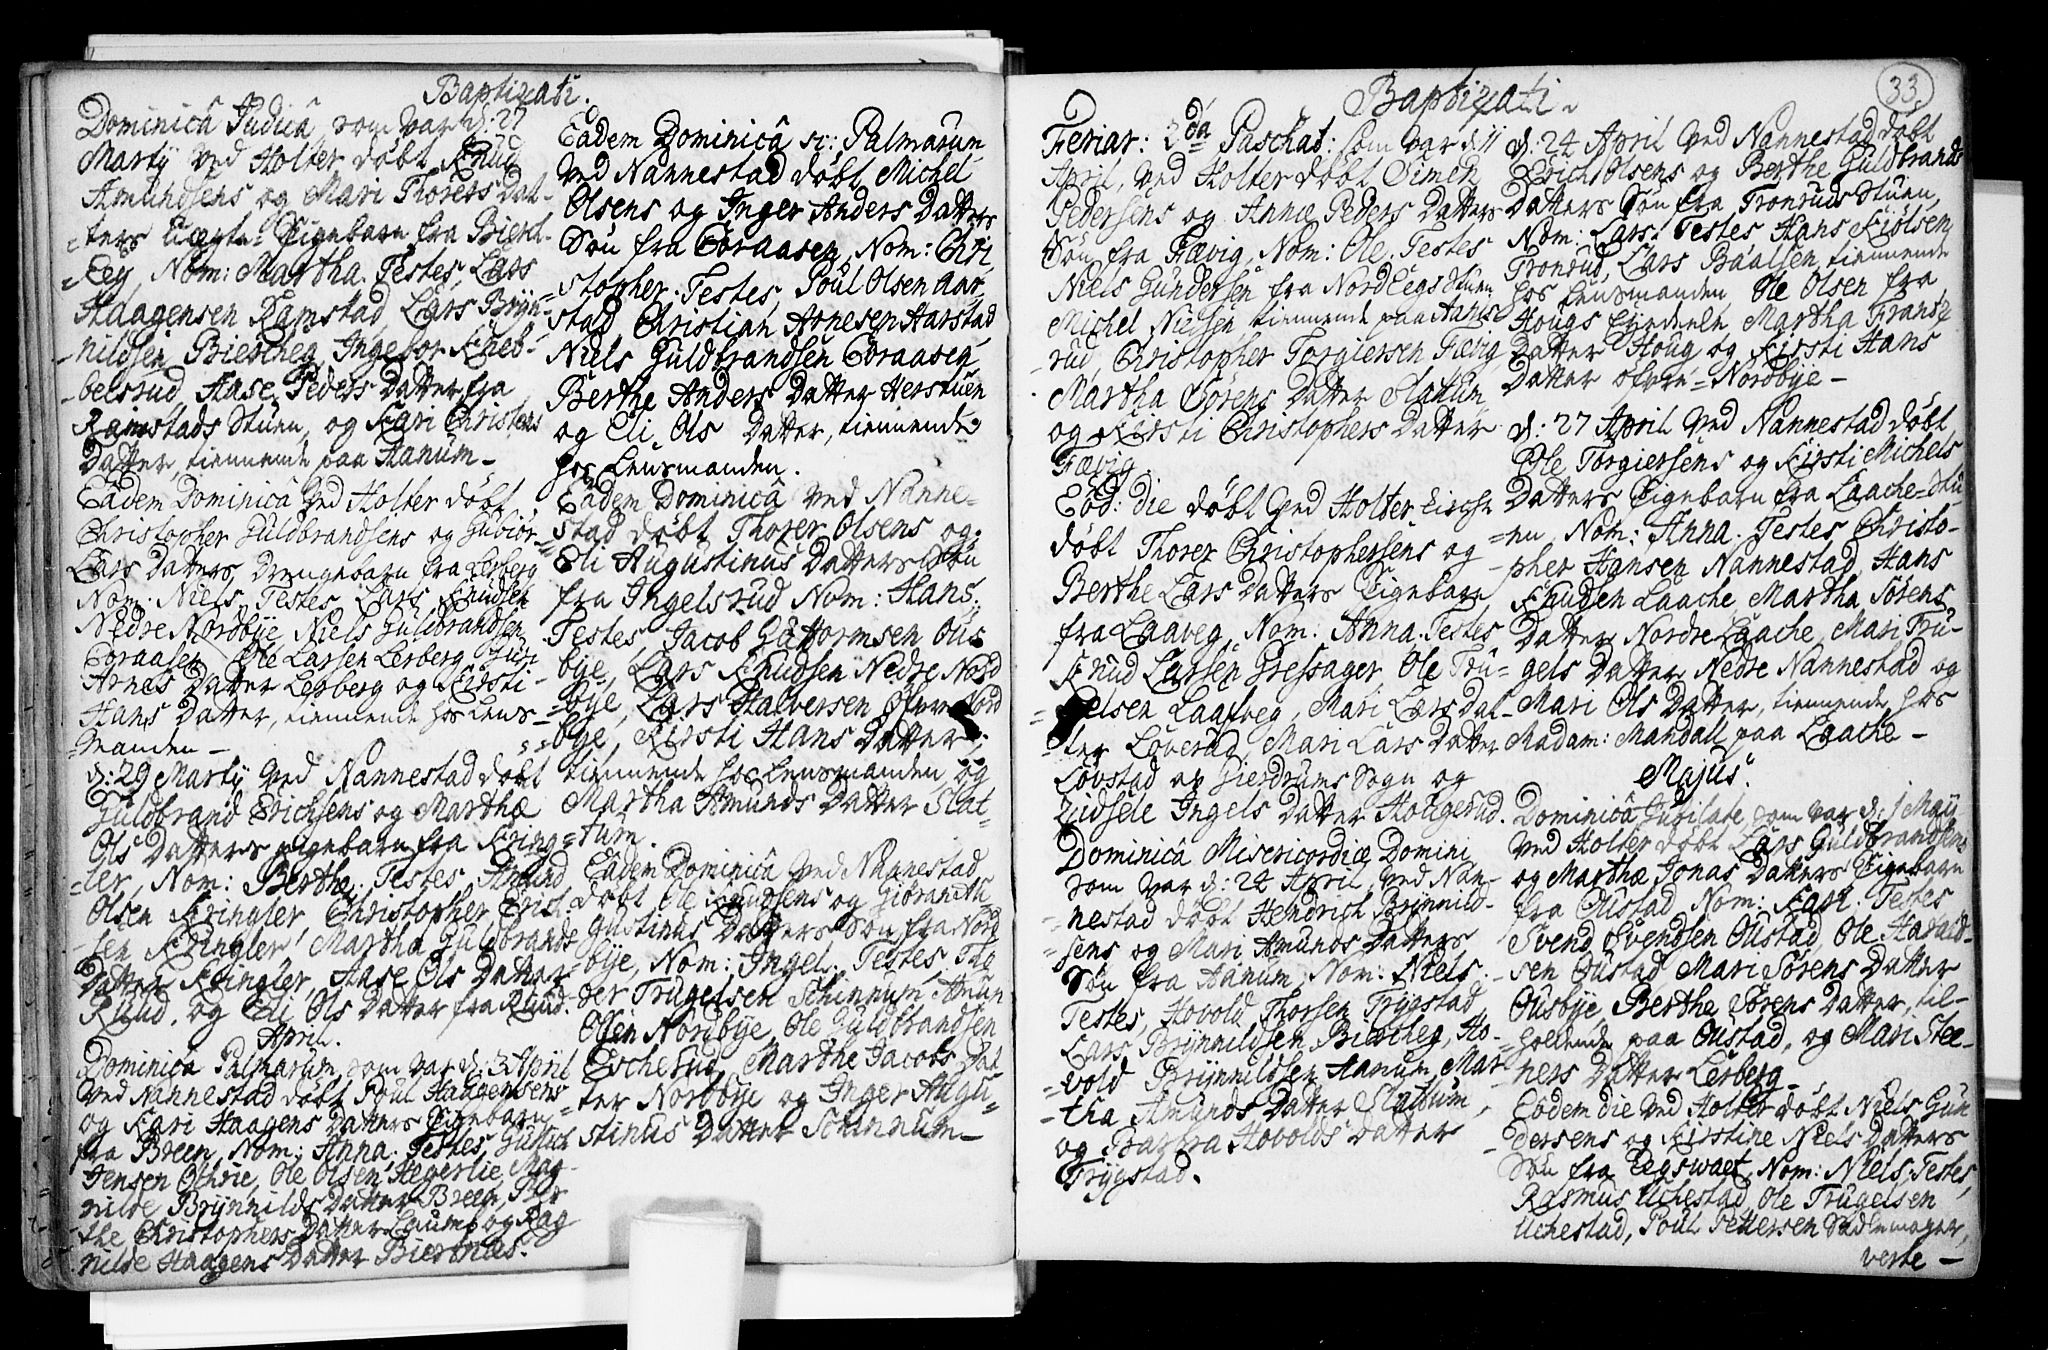 Baptizati.
Dominicâ Judicâ, som var d: 27
Martÿ ved Holter døbt Knud
Amundsens og Mari Thorers Dat-
ters uægte Pigebarn fra Biersh-
-Eeg, Nom: Martha. Testes, Lars
Haagensen Ramstad, Lars Brÿn-
nildsen Biescheg, Ingebor Kneb-
belsrud, Aase Peders Datter fra
Ramstads Stuen, og Kari Christens
Datter, tiennende paa Hanum-
Eadem Dominicâ ved Holter døbt
Christopher Guldbrandsens og Gubiør
Lars Datters Drengebarn fra Lerberg
Nom: Niels, Testes, Lars Knudsen
Nedre Nordbÿe, Niels Guldbrandsen
Coraasen, Ole Larsen Lerberg, Guri
Arnes Datter Lerberg og Kirsti
Hans Datter, tiennende hos Lens-
=manden -
d: 29 Martÿ ved Nannestad døbt
Guldbrand Erichsens og Marthæ
Ols Datters pigebarn fra Kring-
-ler, Nom: Berthe. Testes Amund
Olsen Kringler, Christopher Erich-
sen Kringler, Martha Guldbrands
Datter Kringler, Aase Ols Datter
Ruud, og Eli Ols Datter fra Ruud.
April.
Dominica Palmarum, som var d: 3 April
ved Nannestad døbt Poul Haagensens
og Kari Haagens Datters Pigebarn
fra Breen, Nom: Anna. Testes,
Jensen Othrie, Ole Olsen Hegerlie, Mag-
nilde Brÿnnilds Datter Breen, Ber
the Christophers Datter Laume og Rag
nilde Haagens Datter Biertnæs.
Eadem Dominicâ sc: Palmarum
ved Nannestad døbt Michel
Olsens og Inger Anders Datters
Søn fra Coraasen, Nom: Chri
stopher. Testes, Poul Olsen Aar-
stad, Christian Arnesen Aarstad
Niels Guldbrandsen Coraasen
Berthe Anders Datter Herstuen
og Eli Ols Datter, tiennende
hos Lensmanden.
Eadem Dominicâ ved Nanne-
stad døbt Thorer Olsens og
Eli Augustinus Datters Søn
fra Ingelsrud Nom: Hans.
Testes, Jacob Guttormsen Ous
bÿe, Lars Knudsen Nedre Nord
bÿe, Lars Halversen Øfvre Nord
bÿe, Kirsti Hans Datter,
tiennende hos Lensmanden, og
Martha Amunds Datter Slat-
tum.
Eadem Dominicâ ved Nannestad
døbt Ole Knudsens og Giøran Au
gustinus Datters Søn fra Nord
bÿe, Nom: Ingel. Testes
der Trugelsen Schinnum, Amun
Olsen Nordbÿe, Ole Guldbrandsen
Eschesud, Marthe Jacobs Dat
ter Nordbÿe og Inger Augu-
stinus Datter Schinnum-
33.
Baptizati.
Feriar: 2da Paschat: som var d 11
April, ved Holter døbt Simen
Pedersens og Annæ Peders Datters
Søn fra Fævig, Nom: Ole. Testes
Niels Gundersen fra Nord Eegs Stuen
Michel Nielsen, tiennende paa Aann
rud, Christopher Torgiersen Fævig
Martha Sørens Datter Slatum
og Kirsti Christophers Datter
Fævig.
Eod: die døbt ved Holter Kirche
døbt Thorer Christophersens og
Berthe Lars Datters Pigebarn
fra Laaveg, Nom: Anna. Testes
Knud Larsen Gressager, Ole Tru-
=gelsen Laafveg, Mari Lars Dat-
ter Løverud, Mari Lars Datter
Løvstad af Gierdrums Sogn og
Zidsele Ingels Datter Hougerud.
Dominicâ Misericordiæ Domini
som var d: 24 April, ved Nan-
nestad døbt Hendrich Brinnild-
sens og Mari Amunds Datters
Søn fra Hanum, Nom: Niels.
Testes, Hovold Thorsen Trygstad
Lars Brÿnnildsen Biescheg, Ho-
vold Brÿnnildsen Hanum, Mar
tha Amunds Datter Slattum,
og Barbra Hovolds Datter
Trÿgstad.
d: 24 April ved Nannestad døbt
Erich Olsens og Berthe Guldbrands
Datters Søn fra Tronruds Stuen,
Nom: Lars. Testes Hans Kiølsen
Tronrud, Lars Baalsen, tiennende
hos Lensmanden, Ole Olsen fra
Hougs Eÿedeele, Martha Frantz
Datter Houg og Kirsti Hans
Datter øfvre-Nordbÿe-
d: 27 April ved Nannestad døbt
Ole Torgiersens og Kirsti Michels
Datters Pigebarn fra Laache-Stu
=en, Nom: Anna. Testes, Christo-
-pher Hansen Nannestad, Hans
Knudsen Laache, Martha Sørens
Datter Nordre Laache, Mari Tru-
gels Datter Nedre Nannestad og
Mari Ols Datter, tiennende hos
Madam: Mandall paa Laache-
Majus.
Dominicâ Jubilate, som var d: 1 Maÿ
ved Holter døbt Lars Guldbrandsens
og Marthæ Jonas Datters Pigebarn
fra Oustad, Nom: Kari. Testes
Svend Svendsen Oustad, Ole Harald-
sen Oustad, Mari Sørens Datter
Ousbÿe, Berthe Sørens Datter, til-
holdende paa Oustad, og Mari Stee-
=ners Datter Lerberg-
Eodem die ved Holter døbt Niels Gun
dersens og Kirstine Niels Datters
Søn fra Eegswaet, Nom: Niels, Testes,
Rasmus Uchestad, Ole Trugelsen
Uchestad, Poul Pettersen Sadlemager,
verte -